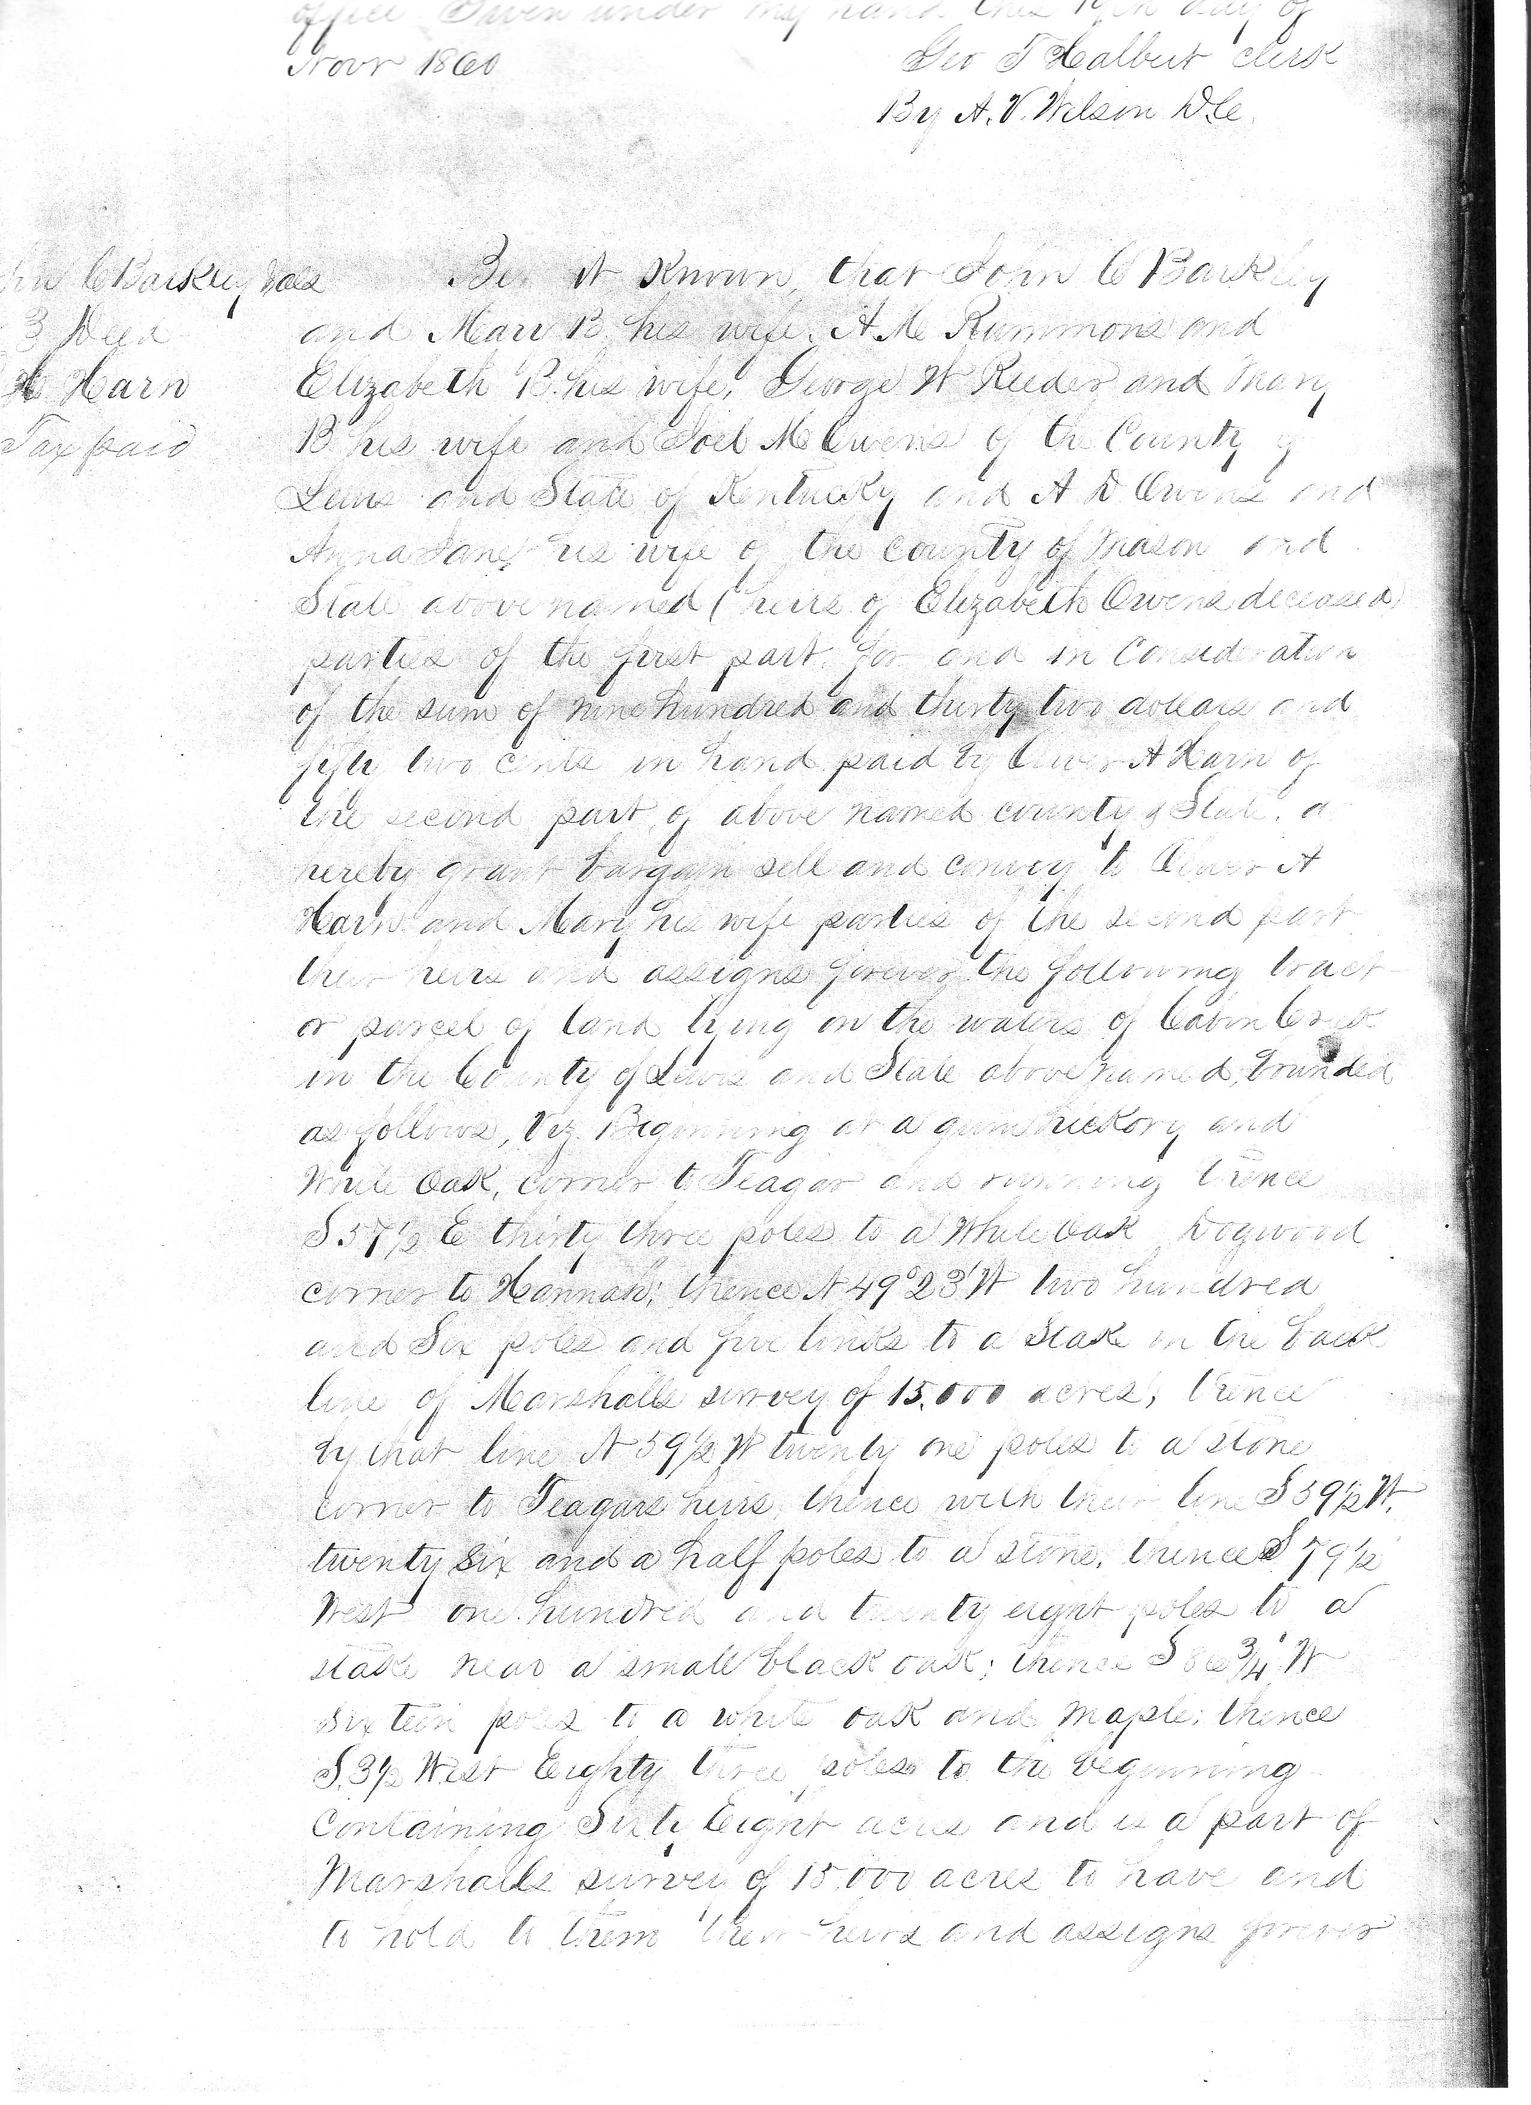 office. Given under my hand this 19th day of
Novr 1860
Geo T Halbert clerk
By A. V. Wilson D.C.
C Barkley &als
Deed
Harn
Tax paid
Be it Known, that John C Barkley
and Mary B. his wife, A M Rummons and
Elizabeth B. his wife, George W Reeder and Mary
B his wife and Joel M Owens of the County of
Lewis and State of Kentucky and A D Owens and
Anna Jane his wife of the county of Mason and
State above named (heirs of Elizabeth Owens deceased)
parties of the first part, for and in Consideration
of the sum of nine hundred and thirty two dollars and
fifty two cents in hand paid by Oliver A Harn of
the second part, of above named county & State, d
hereby grant bargain sell and convey to Oliver A
Harn and Mary his wife parties of the second part
their heirs and assigns forever the following tract
or parcel of land lying on the waters of Cabin Creek
in the County of Lewis and State above named, bounded
as follows, Viz. Beginning at a gum hickory and
White Oak, corner to Teagar and running thence
S 57½ E thirty three poles to a White Oak Dogwood
corner to Hannah; thence N 49° 23' W two hundred
and Six poles and five links to a Stake in the back
line of Marshalls survey of 15.000 acres, thence
by that line N 59½ W twenty one poles to a stone
corner to Teagars heirs, thence with their line S 59½ W.
twenty six and a half poles to a stone, thence S 79½
West one hundred and twenty eight poles to a
stake near a small black oak; thence S 86¾ W
sixteen poles to a white oak and maple; thence
S. 3½ West Eighty three poles to the beginning
Containing Sixty Eight acres and is a part of
Marshalls survey of 15.000 acres to have and
to hold to them their heirs and assigns forever